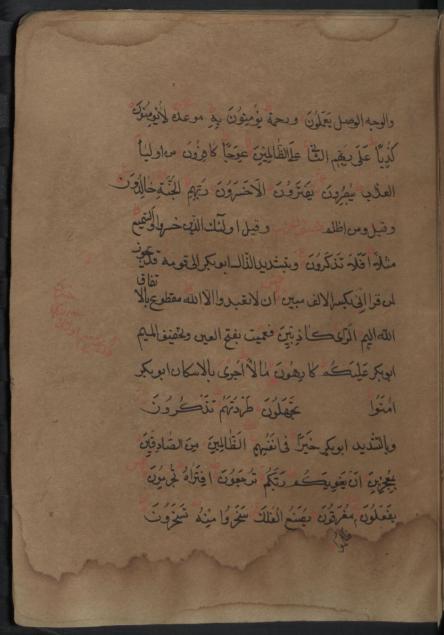 والوجه الوصل يَعْلَمُونَ ورحمة يُؤمِنُونَ بِهِ موعده لَايُؤمِنُونَ
كَذِبًا عَلَى رَبِّهِم الثا عَلَى الظَّالِمِيْنَ عِوَجًا كَافِرُونَ من اوليا
العذاب يُبْصِرُونَ يَفْتَرُونَ الْاَخْسَرُونَ رَبِّهِمْ الْجَنَّة خَالِدُونَ
وقيل ومن اظلم وقيل اولئك الذين خسروا وَالسَّمِيعِ
مَثَلًا اَفَلَا تَذَكَّرُونَ وبتشديد الذال ابوبكر الى قومه
لمن قرا انى بكسر الالف مبين ان لا تعبدوا الا الله مقطوع بالا
الله اليم الرَّاى كَاذِبِيْنَ فعميت بفتح العين وتخفيف الميم
ابوبكر عَلَيْكُم كَارِهُونَ مَالًا اَجْرِىَ بالاسكان ابوبكر
اٰمَنُوا تَجْهَلُونَ طَرَدْتُهُم تَذَكَّرُونَ
وبالتشديد ابوبكر خَيْرًا فى اَنْفُسِهِم الظَّالِمِيْنَ مِنَ الصَّادِقِيْنَ
بِمُعْجِزِيْنَ اَنْ يُغْوِيَكُم رَبُّكُمْ تُرْجَعُونَ افْتَرَاهُ تُجْرِمُونَ
يَفْعَلُونَ مُغْرَقُونَ يَصْنَعُ الْفُلْكَ سَخِرُوا مِنْهُ تَسْخَرُونَ